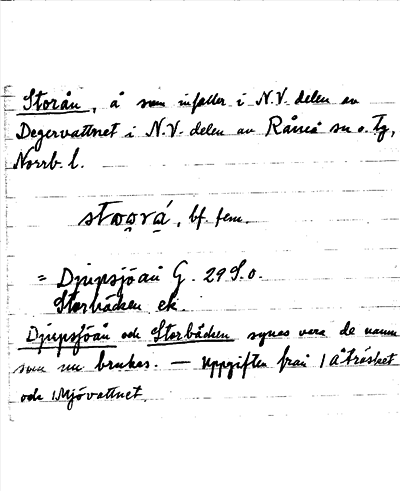 Storån, å som infaller i N.V. delen av
Degervattnet i N.V. delen av Råneå sn o. tg,
Norrb. l.
bf. fem.
= Djupsjöån G. 29 S.o.
Storbäcken ek.
Djupsjöån och Storbäcken synes vara de namn
som nu brukas. — Uppgiften från Åträsket
och Mjövattnet.